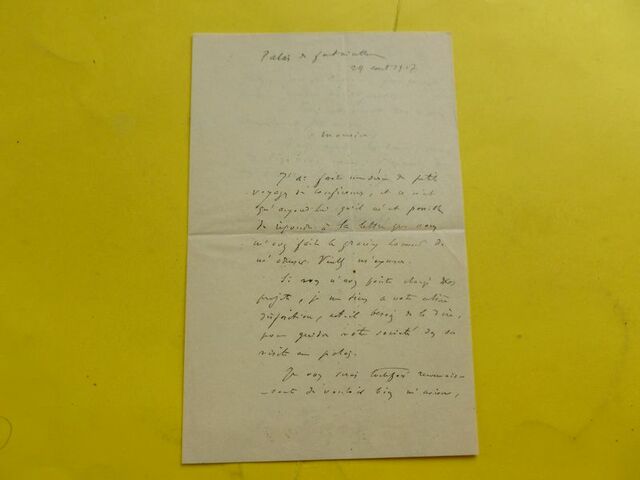 Palais de Fontainebleau
24 août 1907
Monsieur
J'ai fait une série de petits
voyages de conférences, et ce n'est
qu'aujourd'hui qu'il m'est possible
de répondre à la lettre que vous
m'avez fait le gracieux honneur de
m'adresser. Veuillez m'excuser.
Si vous n'avez point changé de
projets, je me tiens à votre entière
disposition, est-il besoin de le dire,
pour guider votre société dans sa
visite au palais.
Je vous serai reconnais-
-sant de vouloir bien m'aviser,